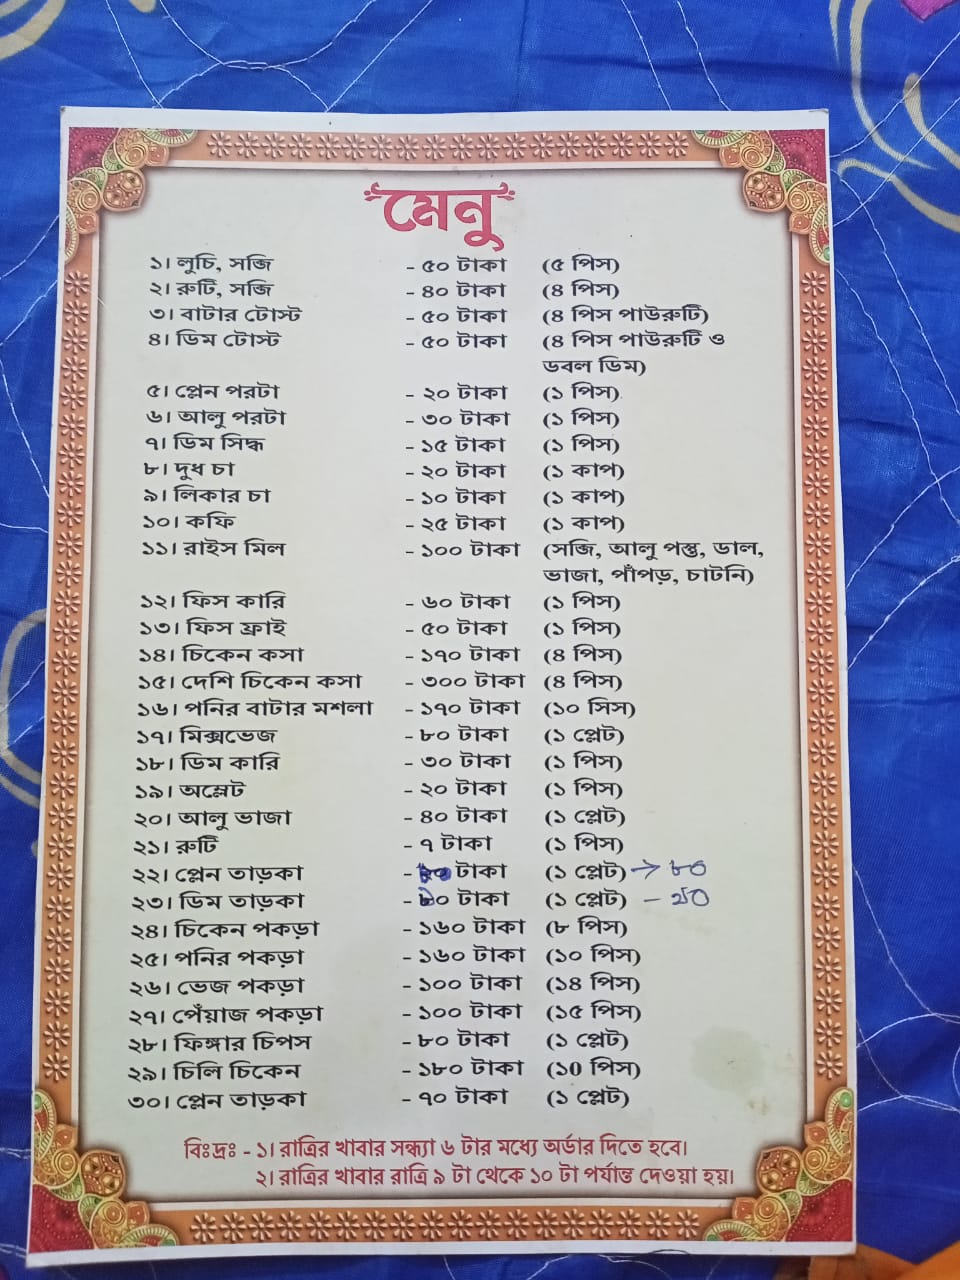 মেনু
১। লুচি, সব্জি - ৫০ টাকা (৫ পিস)
২। রুটি, সব্জি - ৪০ টাকা (৪ পিস)
৩। বাটার টোস্ট - ৫০ টাকা (৪ পিস পাউরুটি)
৪। ডিম টোস্ট - ৫০ টাকা (৪ পিস পাউরুটি ও
ডবল ডিম)
৫। প্লেন পরটা - ২০ টাকা (১ পিস)
৬। আলু পরটা - ৩০ টাকা (১ পিস)
৭। ডিম সিদ্ধ - ১৫ টাকা (১ পিস)
৮। দুধ চা - ২০ টাকা (১ কাপ)
৯। লিকার চা - ১০ টাকা (১ কাপ)
১০। কফি - ২৫ টাকা (১ কাপ)
১১। রাইস মিল - ১০০ টাকা (সব্জি, আলু পস্তু, ডাল,
ভাজা, পাঁপড়, চাটনি)
১২। ফিস কারি - ৬০ টাকা (১ পিস)
১৩। ফিস ফ্রাই - ৫০ টাকা (১ পিস)
১৪। চিকেন কসা - ১৭০ টাকা (৪ পিস)
১৫। দেশি চিকেন কসা - ৩০০ টাকা (৪ পিস)
১৬। পনির বাটার মশলা - ১৭০ টাকা (১০ সিস)
১৭। মিক্সভেজ - ৮০ টাকা (১ প্লেট)
১৮। ডিম কারি - ৩০ টাকা (১ পিস)
১৯। অম্লেট - ২০ টাকা (১ পিস)
২০। আলু ভাজা - ৪০ টাকা (১ প্লেট)
২১। রুটি - ৭ টাকা (১ পিস)
২২। প্লেন তাড়কা - টাকা (১ প্লেট) → ৮০
২৩। ডিম তাড়কা - টাকা (১ প্লেট) - ৯০
২৪। চিকেন পকড়া - ১৬০ টাকা (৮ পিস)
২৫। পনির পকড়া - ১৬০ টাকা (১০ পিস)
২৬। ভেজ পকড়া - ১০০ টাকা (১৪ পিস)
২৭। পেঁয়াজ পকড়া - ১০০ টাকা (১৫ পিস)
২৮। ফিঙ্গার চিপস - ৮০ টাকা (১ প্লেট)
২৯। চিলি চিকেন - ১৮০ টাকা (১0 পিস)
৩০। প্লেন তাড়কা - ৭০ টাকা (১ প্লেট)
বিঃদ্রঃ - ১। রাত্রির খাবার সন্ধ্যা ৬ টার মধ্যে অর্ডার দিতে হবে।
২। রাত্রির খাবার রাত্রি ৯ টা থেকে ১০ টা পর্যান্ত দেওয়া হয়।